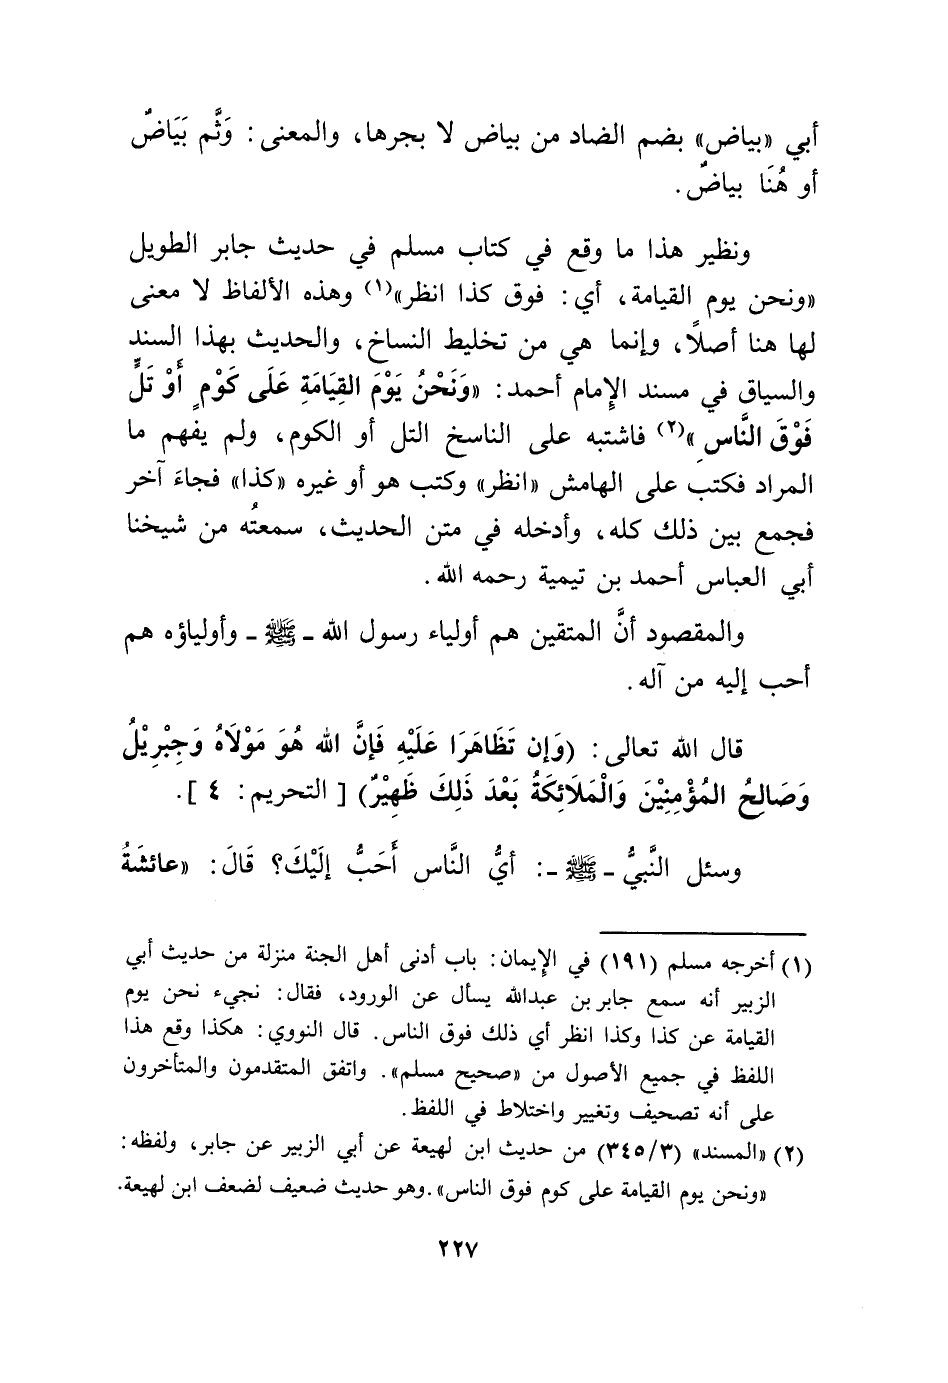 أبي «بياض» بضم الضاد من بياض لا بجرها، والمعنى: وَثَّم بَيَاضٌ
أو هُنَا بياضٌ.
ونظير هذا ما وقع في كتاب مسلم في حديث جابر الطويل
«ونحن يوم القيامة، أي: فوق كذا انظر»(١) وهذه الألفاظ لا معنى
لها هنا أصلًا، وإنما هي من تخليط النساخ، والحديث بهذا السند
والسياق في مسند الإمام أحمد: «وَنَحْنُ يَوْمَ القِيَامَةِ عَلَى كَوْمٍ أَوْ تَلٍّ
فَوْقَ النَّاسِ»(٢) فاشتبه على الناسخ التل أو الكوم، ولم يفهم ما
المراد فكتب على الهامش «انظر» وكتب هو أو غيره «كذا» فجاءَ آخر
فجمع بين ذلك كله، وأدخله في متن الحديث، سمعتُه من شيخنا
أبي العباس أحمد بن تيمية رحمه الله.
والمقصود أنَّ المتقين هم أولياء رسول الله - ﷺ - وأولياؤه هم
أحب إليه من آله.
قال الله تعالى: (وَإِن تَظَاهَرَا عَلَيْهِ فَإِنَّ الله هُوَ مَوْلَاهُ وَجِبْرِيْلُ
وَصَالِحُ المُؤْمِنِيْنَ وَالْمَلَائِكَةُ بَعْدَ ذَلِكَ ظَهِيْرٌ) [ التحريم: ٤ ].
وسئل النَّبيُّ - ﷺ -: أيُّ النَّاس أَحَبُّ إلَيْكَ؟ قَالَ: «عائشَةُ
(١) أخرجه مسلم (١٩١) في الإيمان: باب أدنى أهل الجنة منزلة من حديث أبي
الزبير أنه سمع جابر بن عبدالله يسأل عن الورود، فقال: نجيء نحن يوم
القيامة عن كذا وكذا انظر أي ذلك فوق الناس. قال النووي: هكذا وقع هذا
اللفظ في جميع الأصول من «صحيح مسلم». واتفق المتقدمون والمتأخرون
على أنه تصحيف وتغيير واختلاط في اللفظ.
(٢) «المسند» (٣٤٥/٣) من حديث ابن لهيعة عن أبي الزبير عن جابر، ولفظه:
«ونحن يوم القيامة على كوم فوق الناس».وهو حديث ضعيف لضعف ابن لهيعة.
٢٢٧